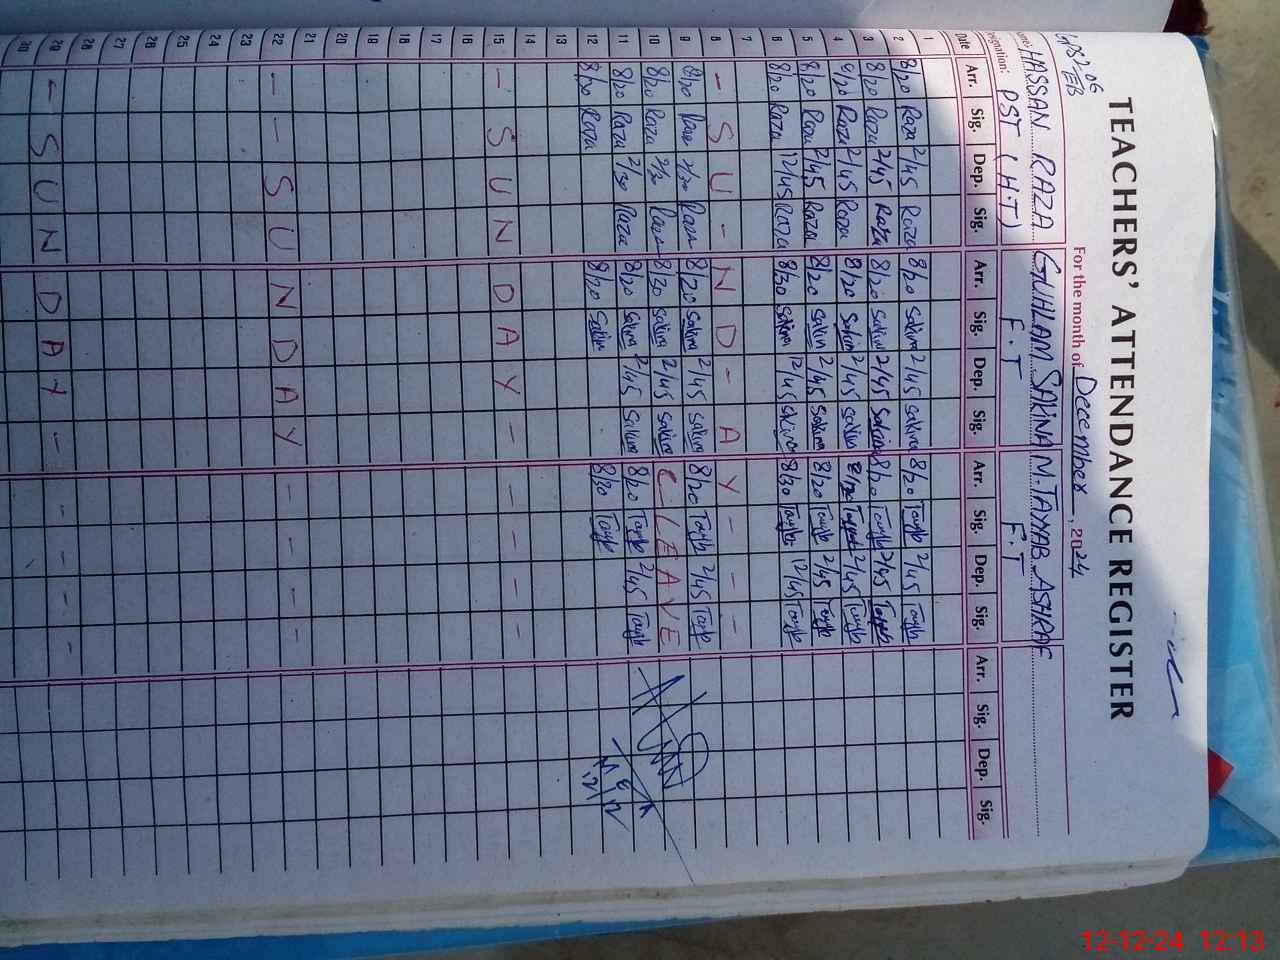 GPS 206
E/B
TEACHERS' ATTENDANCE REGISTER
For the month of December, 2024
Name: HASSAN RAZA GUHLAM SAKINA M. TAYYAB ASHRAF
Designation: PST (H.T) F.T F.T
Date Arr. Sig. Dep. Sig. Arr. Sig. Dep. Sig. Arr. Sig. Dep. Sig. Arr. Sig. Dep. Sig.
1
2 8/20 Raza 2/45 Raza 8/20 Sakina 2/45 Sakina 8/20 Tayyab 2/45 Tayyab
3 8/20 Raza 2/45 Raza 8/20 Sakina 2/45 Sakina 8/20 Tayyab 2/45 Tayyab
4 8/20 Raza 2/45 Raza 8/20 Sakina 2/45 Sakina 8/20 Tayyab 2/45 Tayyab
5 8/20 Raza 2/45 Raza 8/20 Sakina 2/45 Sakina 8/20 Tayyab 2/45 Tayyab
6 8/20 Raza 12/45 Raza 8/30 Sakina 12/45 Sakina 8/30 Tayyab 12/45 Tayyab
7
8 - S U - N D - A Y - - -
9 8/20 Raza 2/30 Raza 8/20 Sakina 2/45 Sakina 8/20 Tayyab 2/45 Tayyab
10 8/20 Raza 2/30 Raza 8/30 Sakina 2/45 Sakina C LEAVE
11 8/20 Raza 2/30 Raza 8/20 Sakina 2/45 Sakina 8/20 Tayyab 2/45 Tayyab
12 8/30 Raza 8/20 Sakina 8/30 Tayyab
13
14
15 - S U N D A Y - - - - -
16
17
18
19
20
21
22 - - S U N D A Y - - - -
23
24
25
26
27
28
29 - S U N D A Y - - - - -
30
12-12-24 12:13